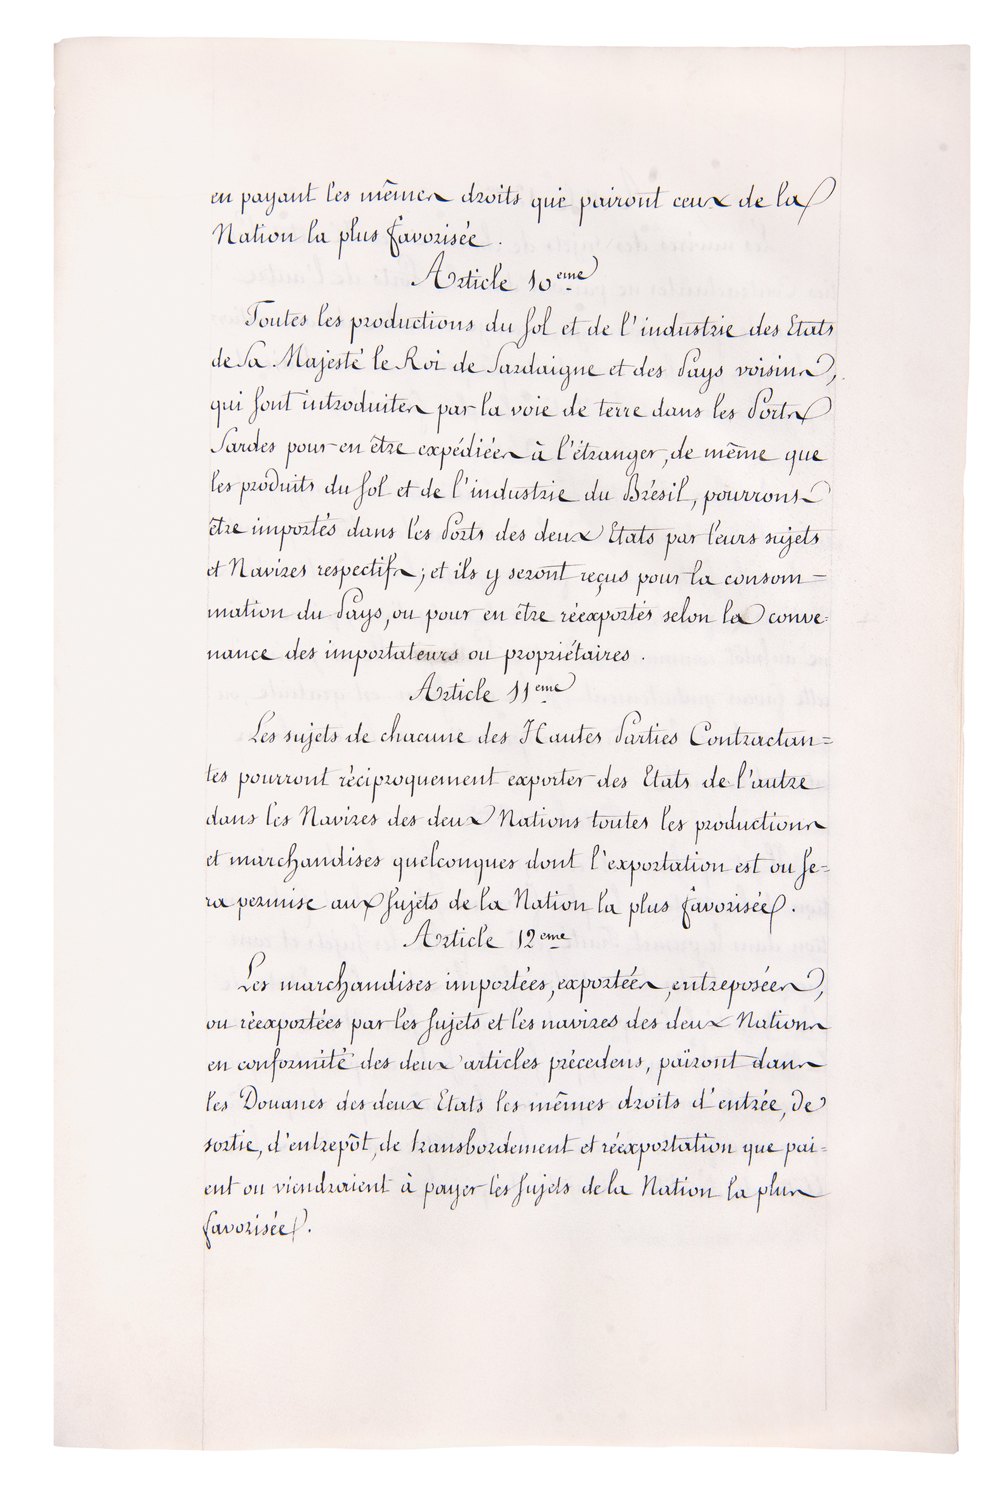 en payant les mêmes droits que pairont ceux de la
Nation la plus favorisée.
Article 10eme
Toutes les productions du sol et de l'industrie des Etats
de Sa Majesté le Roi de Sardaigne et des Pays voisins,
qui sont introduites par la voie de terre dans les Ports
Sardes pour en être expédiées à l'étranger, de même que
les produits du sol et de l'industrie du Brésil, pourrons
être importés dans les Ports des deux Etats par leurs sujets
et Navires respectifs; et ils y seront reçus pour la consom-
mation du Pays, ou pour en être réexportés selon la conve=
nance des importateurs ou propriétaires.
Article 11eme
Les sujets de chacune des Hautes Parties Contractan=
tes pourront réciproquement exporter des Etats de l'autre
dans les Navires des deux Nations toutes les productions
et marchandises quelconques dont l'exportation est ou se=
ra permise aux sujets de la Nation la plus favorisée.
Article 12eme
Les marchandises importées, exportées, entreposées,
ou réexportées par les sujets et les navires des deux Nations
en conformité des deux articles précedens, païront dans
les Douanes des deux Etats les mêmes droits d'entrée, de
sortie, d'entrepôt, de transbordement et réexportation que pai=
ent ou viendraient à payer les sujets de la Nation la plus
favorisée.